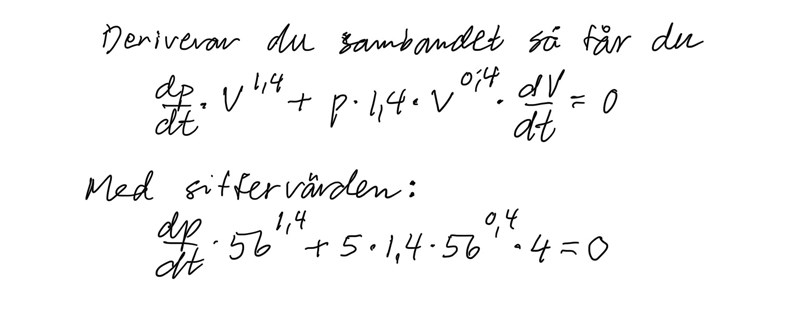 Deriverar du sambandet så får du
dp/dt · V^1,4 + p · 1,4 · V^0,4 · dV/dt = 0
Med siffervärden:
dp/dt · 56^1,4 + 5 · 1,4 · 56^0,4 · 4 = 0